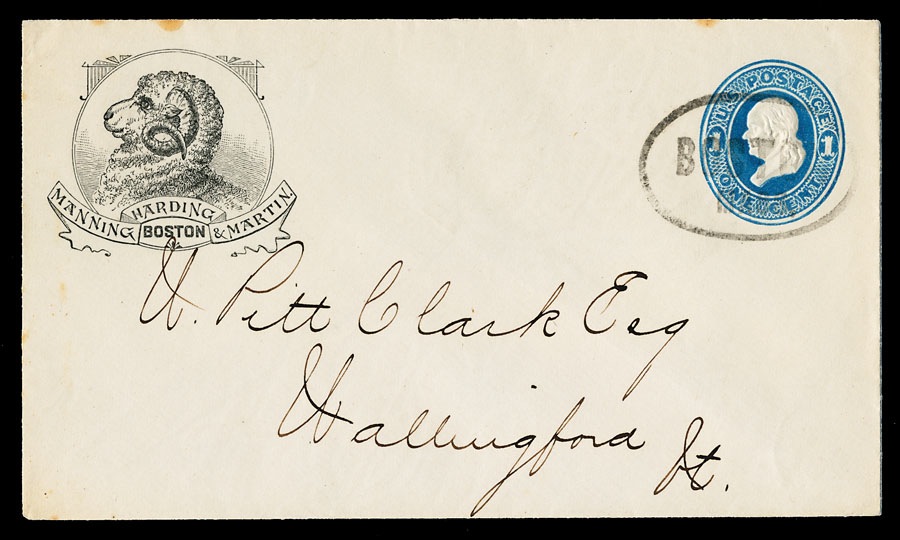 HARDING
MANNING BOSTON & MARTIN.
U.S. POSTAGE
1 1
ONE CENT
W. Pitt Clark Esq
Wallingford Vt.